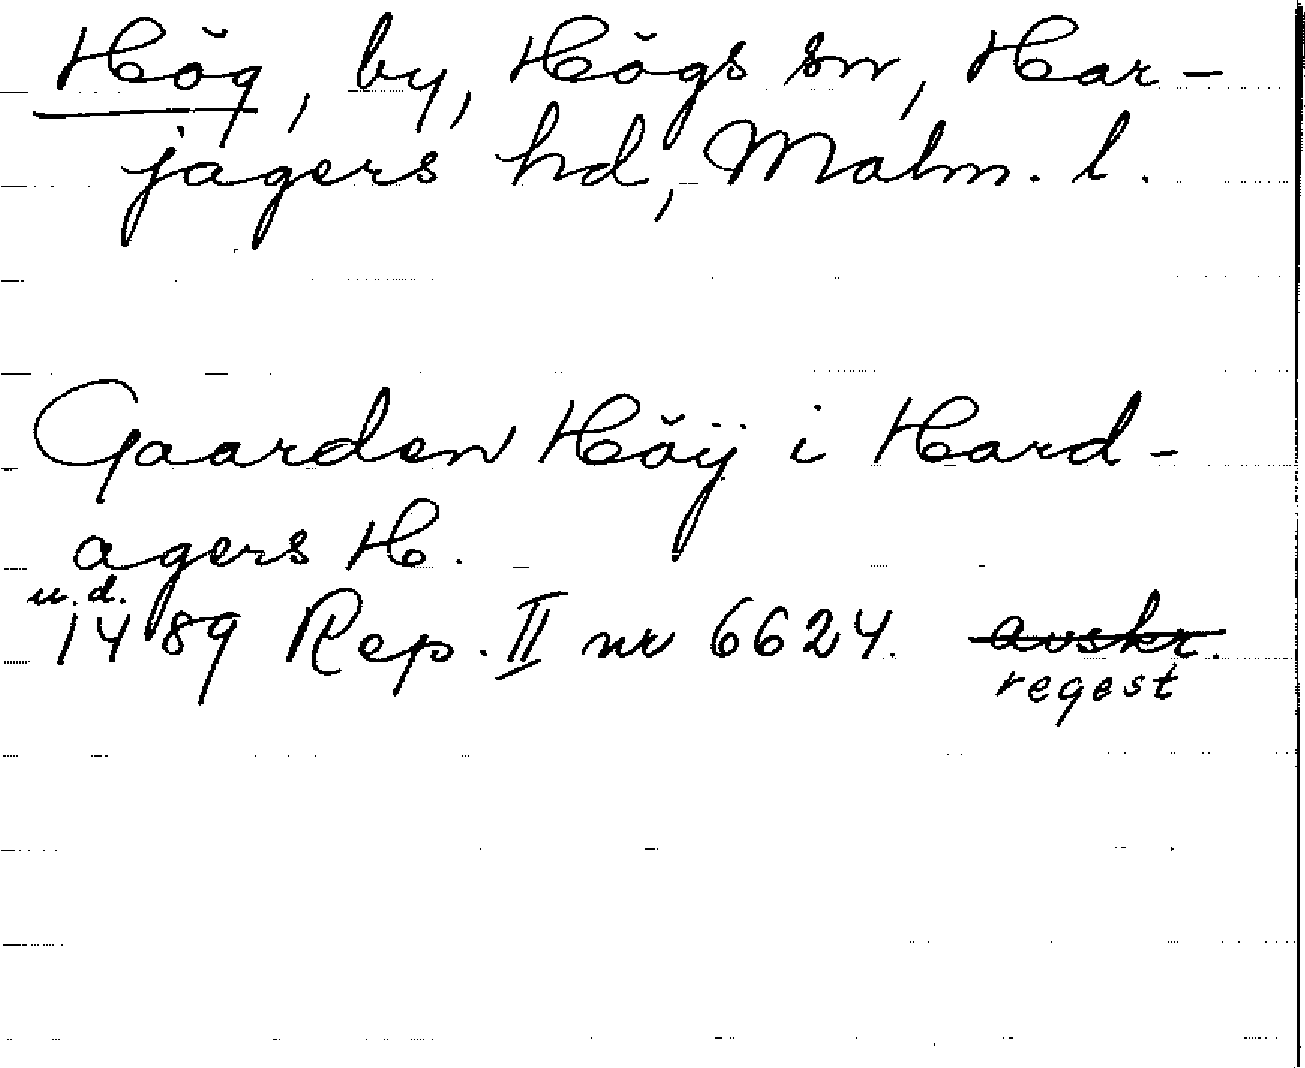 Hög, by, Högs sn, Har-
jagers hd, Malm. l.
Gaarden Höÿ i Hard-
agers H.
u.d.
1489 Rep. II nr 6624. avskr.
regest